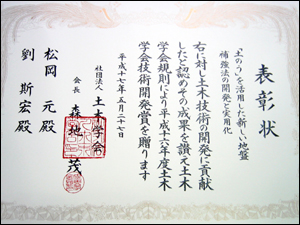 表彰状
「土のう」を活用した新しい地盤
補強法の開発と実用化
右に対し土木技術の開発に貢献
したと認めその成果を讃え土木
学会規則により平成十六年度土木
学会技術開発賞を贈ります
平成十七年五月二十七日
社団法人 土木学会
会長 森地 茂
松岡 元殿
劉 斯宏殿